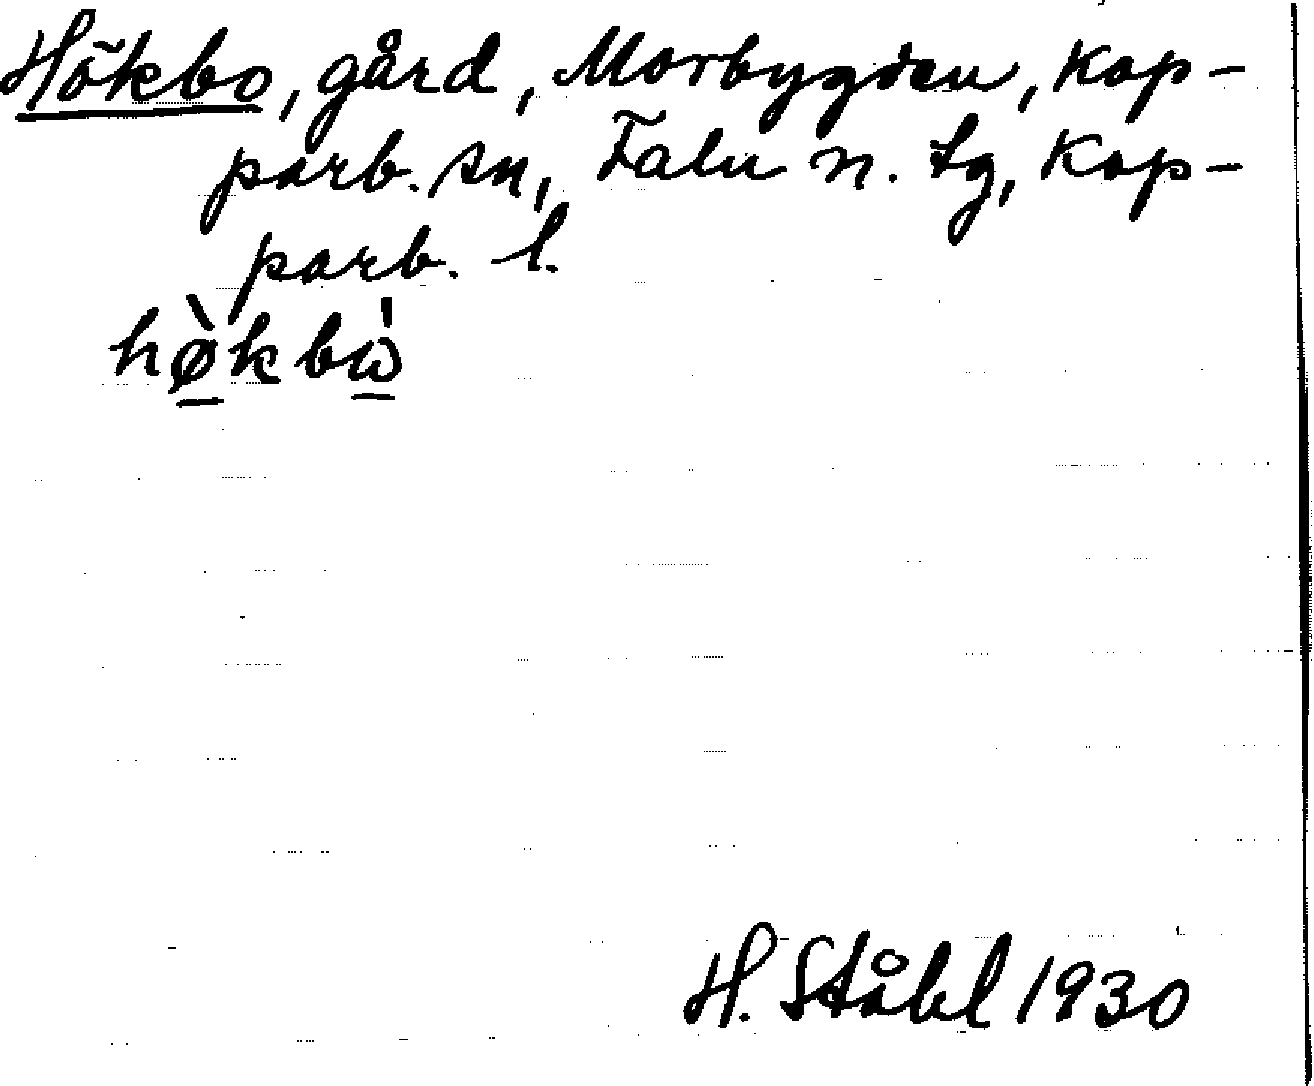 Hökbo, gård, Morbygden, Kop-
parb. sn, Falu n. tg, Kop-
parb. l.
hø̀kbὼ
H. Ståhl 1930